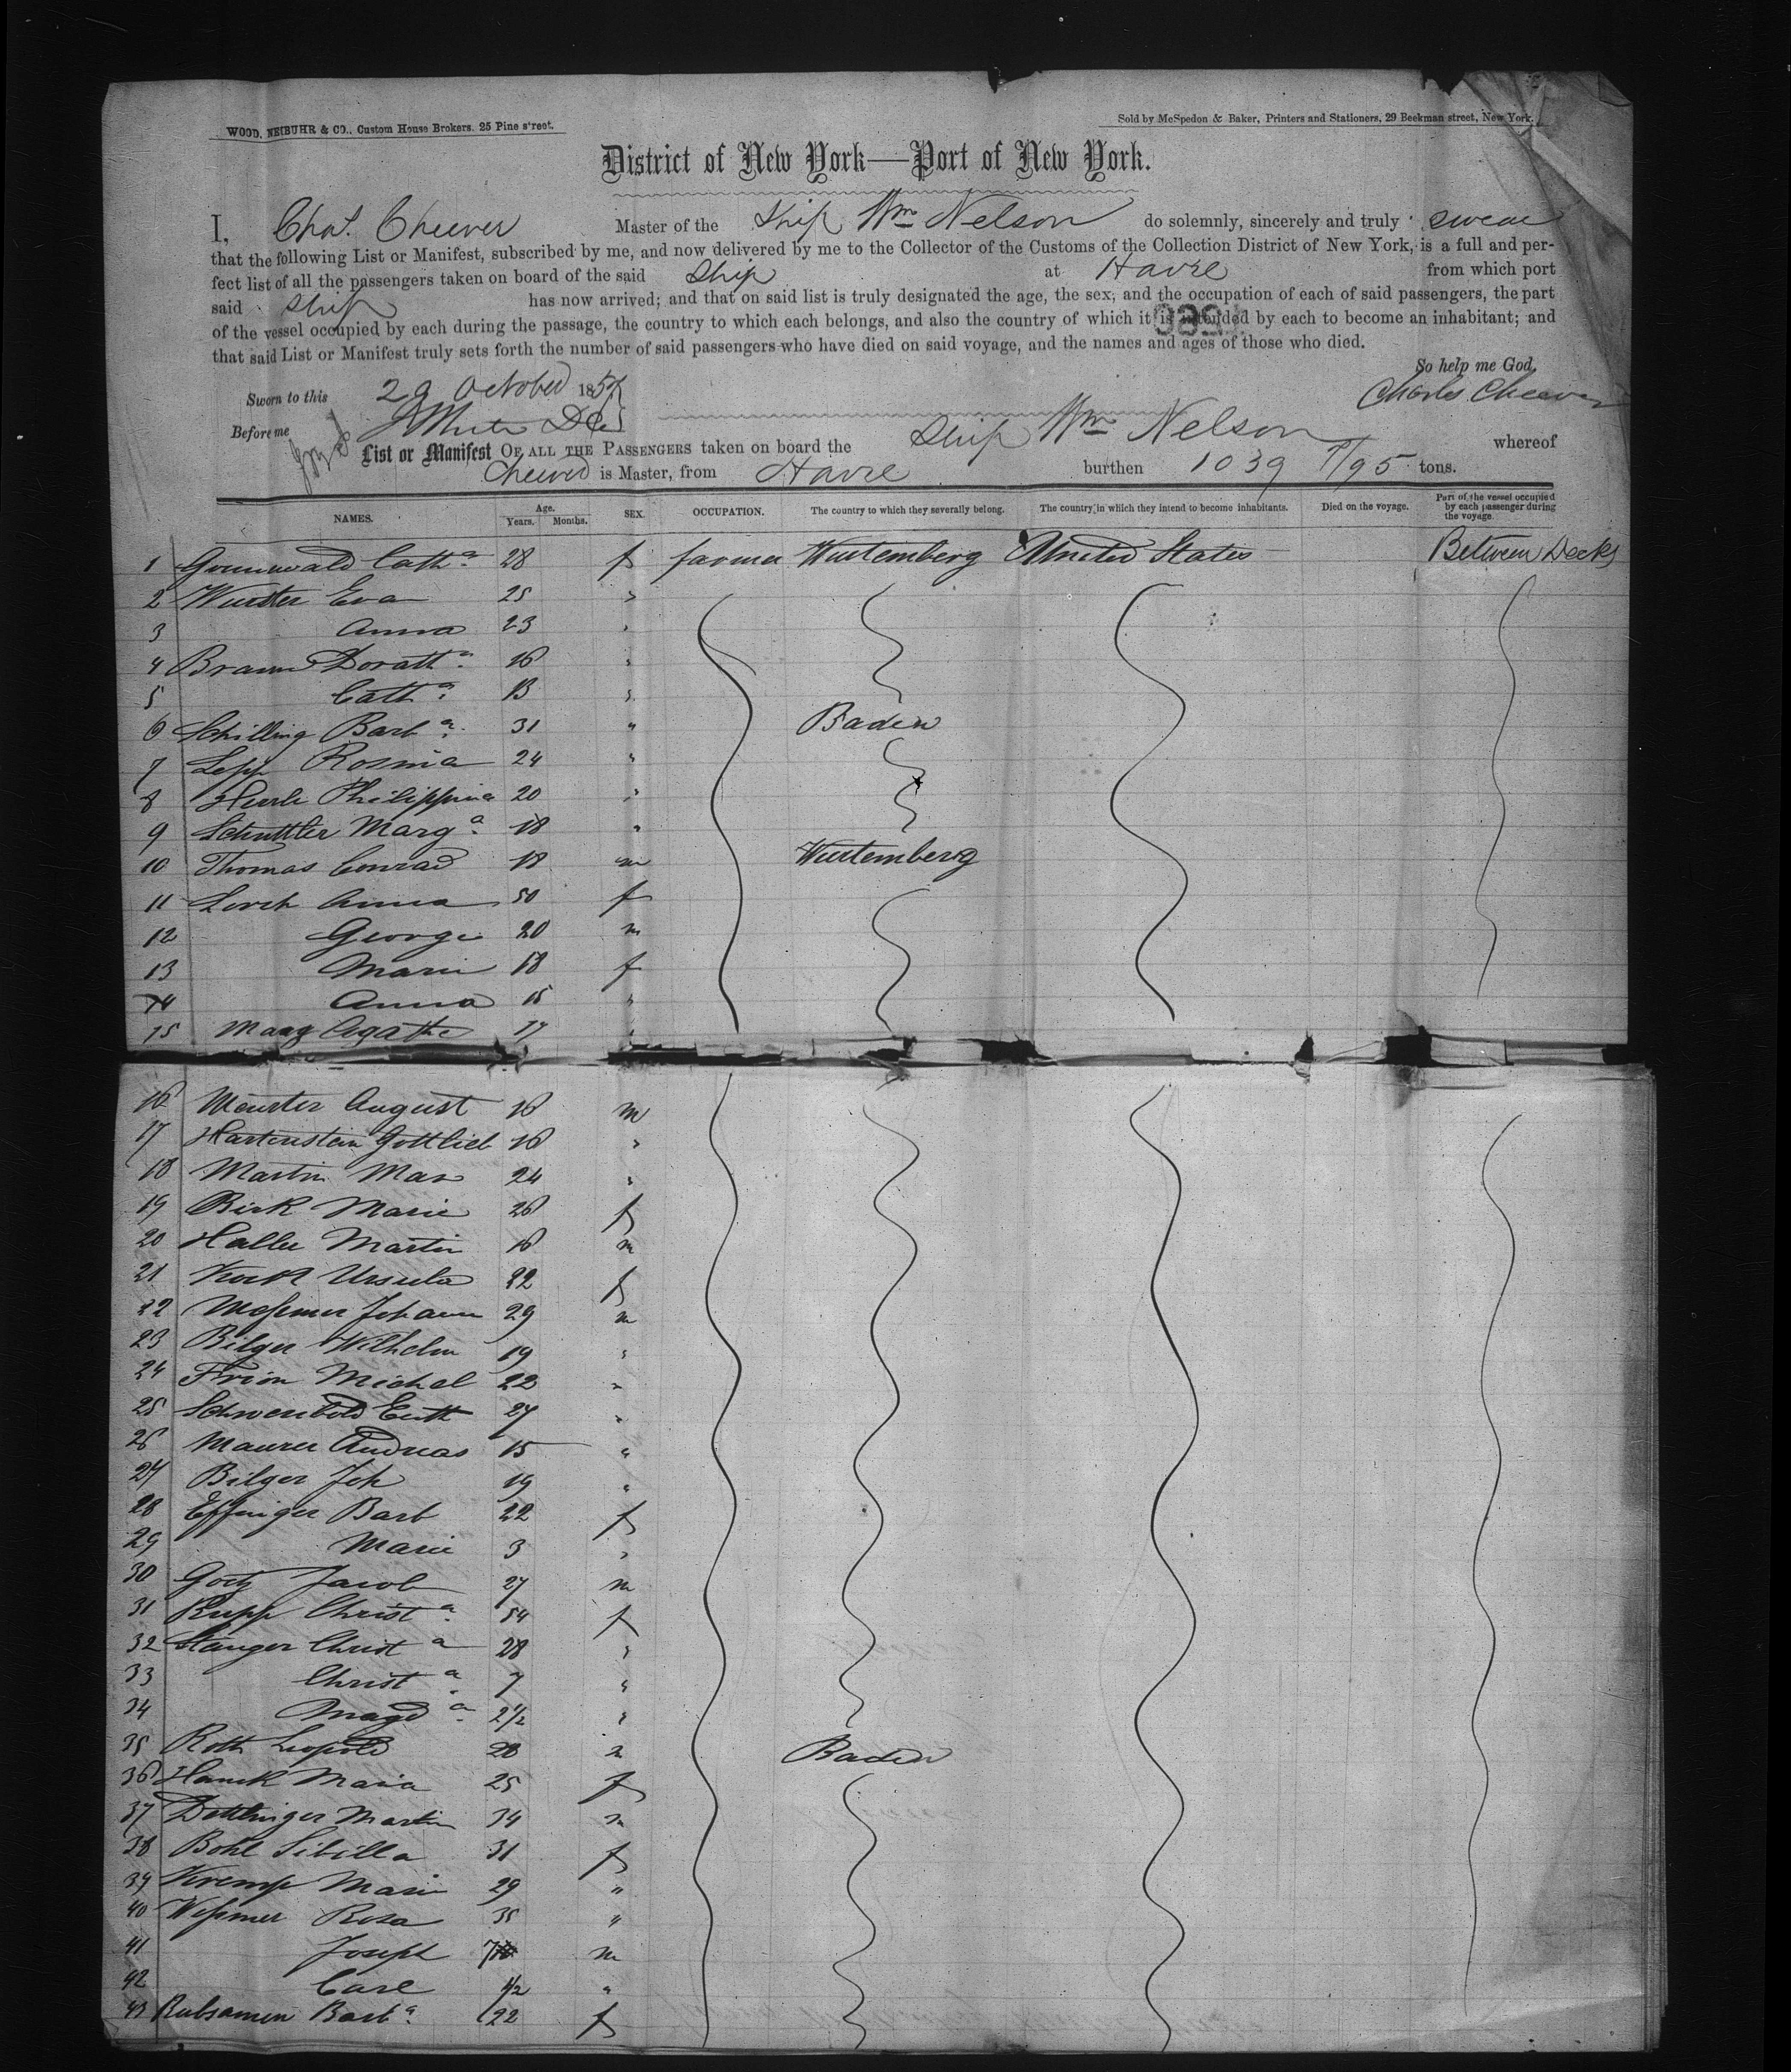 WOOD, NEIBUHR & CO., Custom House Brokers. 25 Pine street.
Sold by McSpedon & Baker, Printers and Stationers, 29 Beekman street, New York.
District of New York—Port of New York.
I, Chas. Cheever Master of the Ship Wm Nelson do solemnly, sincerely and truly swear
that the following List or Manifest, subscribed by me, and now delivered by me to the Collector of the Customs of the Collection District of New York, is a full and per-
fect list of all the passengers taken on board of the said Ship at Havre from which port
said Ship has now arrived; and that on said list is truly designated the age, the sex, and the occupation of each of said passengers, the part
of the vessel occupied by each during the passage, the country to which each belongs, and also the country of which it is intended by each to become an inhabitant; and
that said List or Manifest truly sets forth the number of said passengers who have died on said voyage, and the names and ages of those who died.
So help me God.
Sworn to this 29 October 185
Charles Cheever
Before me
List or Manifest OF ALL THE PASSENGERS taken on board the Ship Wm Nelson whereof
Cheever is Master, from Havre burthen 1039 /95 tons.
NAMES. Age. Years. Months. SEX. OCCUPATION. The country to which they severally belong. The country in which they intend to become inhabitants. Died on the voyage. Part of the vessel occupied by each passenger during the voyage.
1 Grunwald Catha 28 f farmer Wurtemberg United States Between Decks
2 Wurster Eva 25 "
3 Anna 23 "
4 Braun Doratha 16 "
5 Catha 13 "
6 Schilling Barba 31 " Baden
7 Lepp Rosina 24 "
8 Herrle Philippina 20 "
9 Schuttler Marga 18 "
10 Thomas Conrad 18 m Wurtemberg
11 Lorch Anna 50 f
12 George 20 m
13 Marie 18 f
14 Anna 15 "
15 Marg Agathe 17 "
16 Wurster August 16 m
17 Hartenstein Gottlieb 16 "
18 Martin Max 24 "
19 Birk Marie 26 f
20 Haller Martin 16 m
21 Kock Ursula 22 f
22 Messmer Johann 29 m
23 Bilger Wilhelm 19 "
24 Frion Michel 22 "
25 27 "
26 Maurer Andreas 15 "
27 Bilger Joh 19 "
28 Effinger Barb 22 f
29 Marie 3 "
30 Gotz Jacob 27 m
31 Rupp Christa 54 f
32 Stanger Christa 28 "
33 Christa 7 "
34 Magda 2½ "
35 Roth Leopold 28 m Baden
36 Hauck Maria 25 f
37 Dettlinger Martin 34 m
38 Bohl Sibilla 31 f
39 Kremp Marie 29 "
40 Wessmer Rosa 35 "
41 Joseph 7 m
42 Carl ½ "
43 Rubsamen Barba 22 f